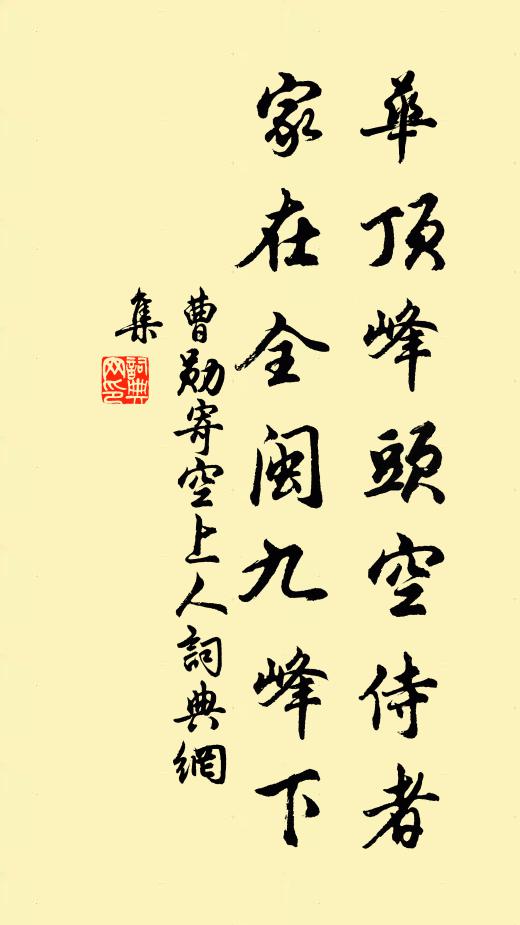 華顶峰頭空侍者
家在全闽九峰下
曹勋寄空上人詞典網
集
詞典
网印